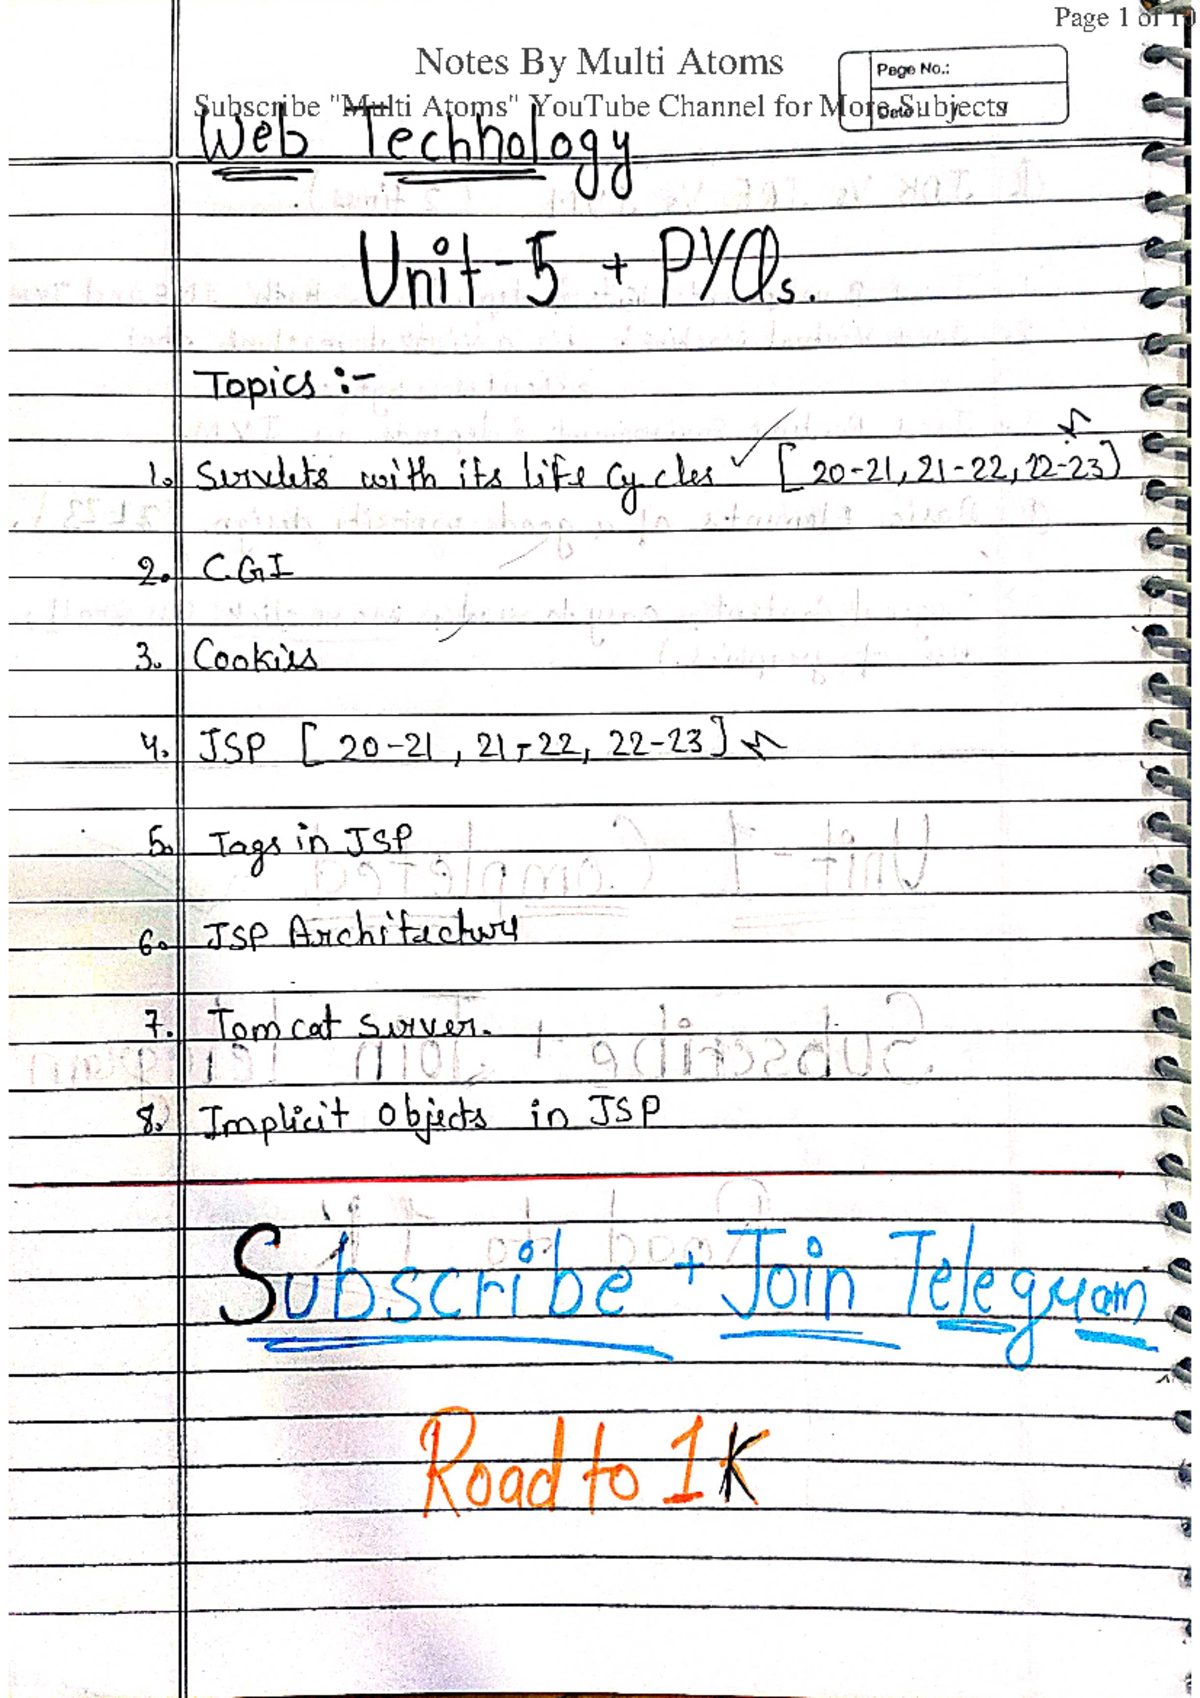 Page 1 of 10
Notes By Multi Atoms
Page No.:
Subscribe "Multi Atoms" YouTube Channel for More Subjects
Date
Web Technology
Unit-5 + PYQs.
Topics :-
1. Servlets with its life Cycles ✓ [20-21, 21-22, 22-23]
2. CGI
3. Cookies
4. JSP [20-21, 21-22, 22-23]
5. Tags in JSP
6. JSP Architecture
7. Tomcat Server.
8. Implicit Objects in JSP
Subscribe + Join Telegram
Road to 1K